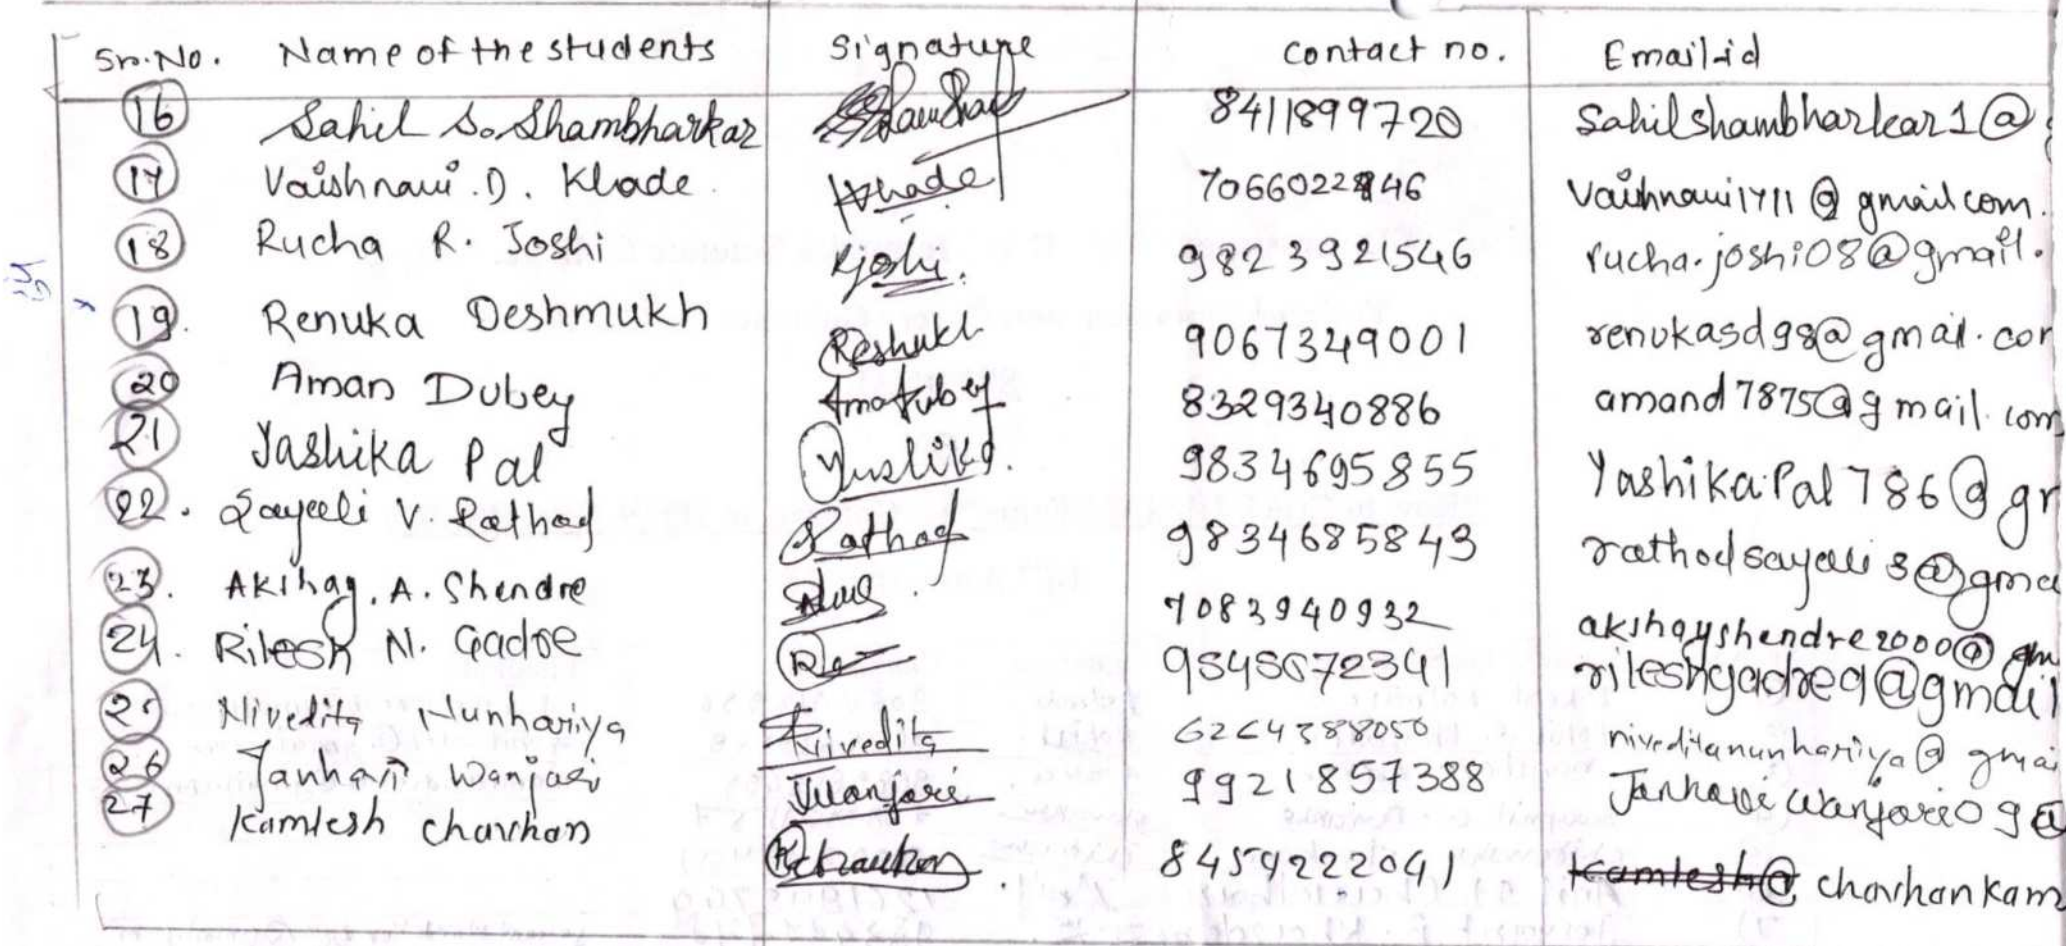 Sr.No. Name of the students Signature Contact no. Email-id
16 Sahil S. Shambharkar 8411899720 Sahilshambharkar1@
17 Vaishnavi.D. Khade Khade 7066022846 Vaishnavi1711@gmail.com
18 Rucha R. Joshi Rjoshi. 9823921546 rucha.joshi08@gmail.
19. Renuka Deshmukh 9067349001 renukasd98@gmail.com
20 Aman Dubey 8329340886 amand7875@gmail.com
21 Yashika Pal Yashika. 9834695855 YashikaPal786@gm
22. Sayali V. Rathod Rathod 9834685843 rathodsayali3@gma
23. Akshay. A. Shendre 7083940932 akshayshendre2000@gm
24. Ritesh N. Gadre riteshgadre9@gmail
25 Nivedita Nunhariya Nivedita niveditanunhariya@gmai
26 Janhavi Wanjari JWanjari 9921857388 Janhaviwanjari09@
27 Kamlesh Chavhan KChavhan. 8459222041 kamlesh@ chavhankam